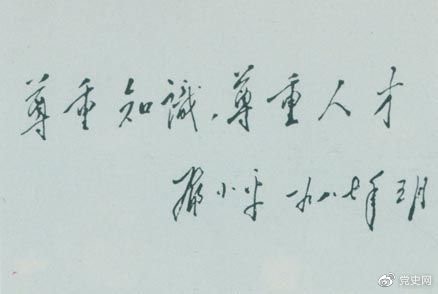 尊重知識，尊重人才
鄧小平 一九八七年五月
@党史网